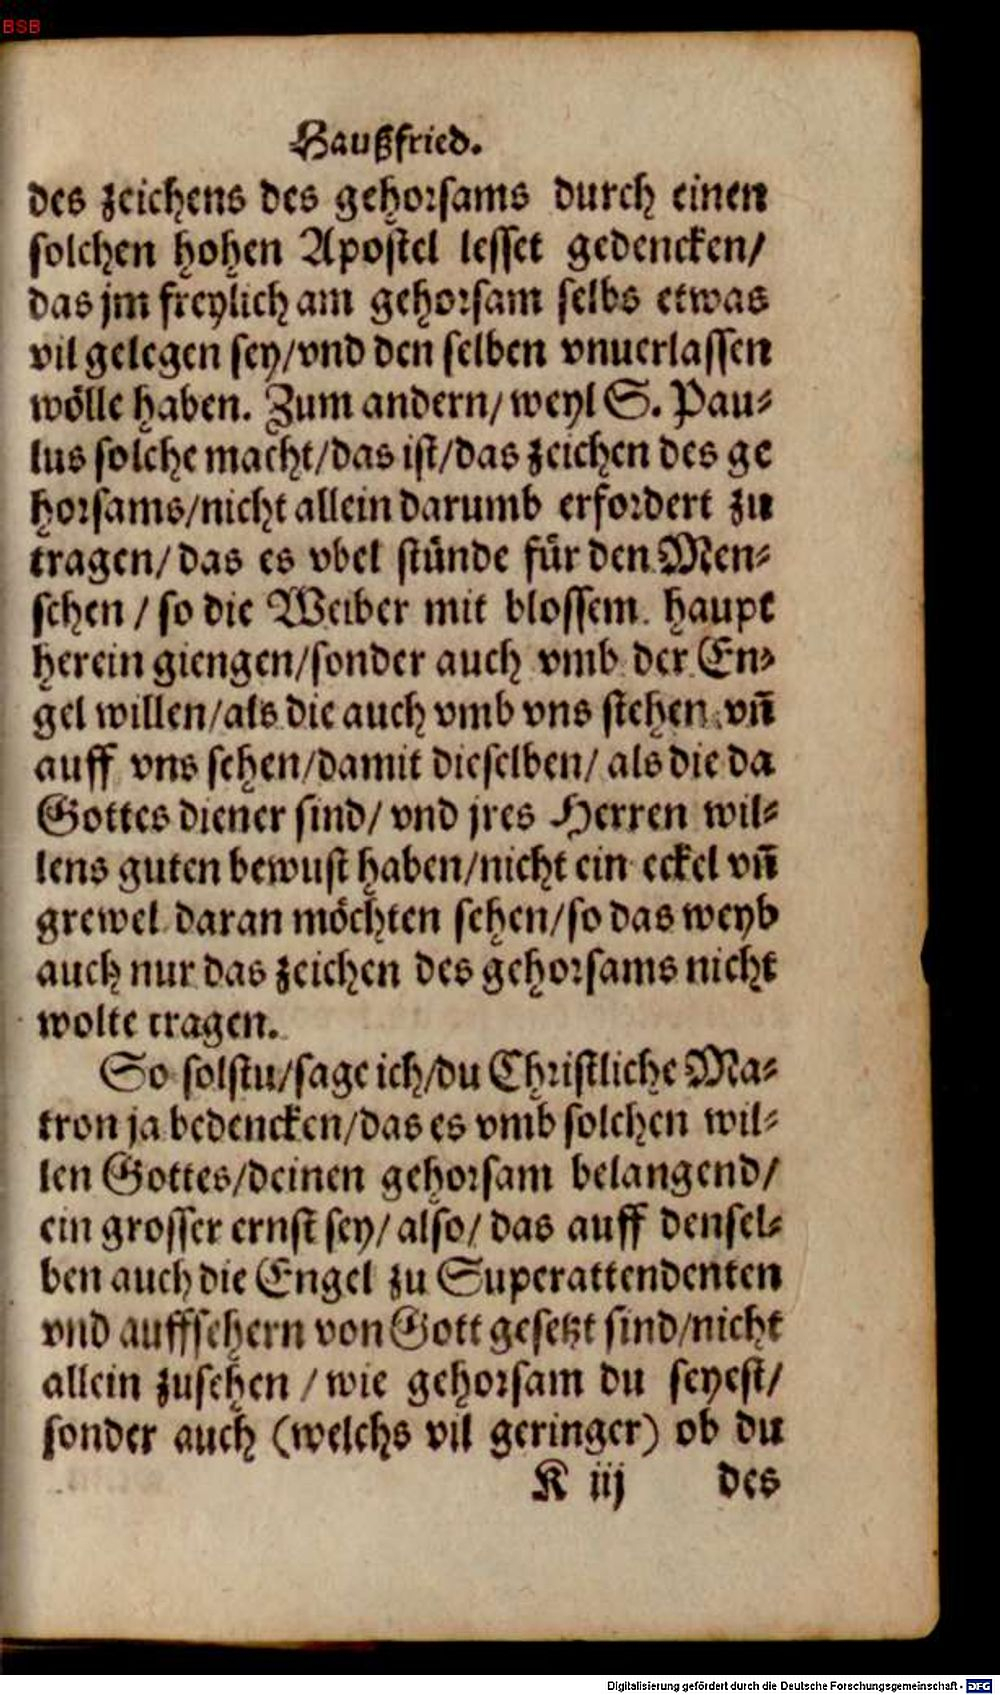 BSB
Haußfried.
des zeichens des gehorsams durch einen
solchen hohen Apostel lesset gedencken/
das jm freylich am gehorsam selbs etwas
vil gelegen sey/vnd den selben vnuerlassen
wölle haben. Zum andern/weyl S. Pau⸗
lus solche macht/das ist/das zeichen des ge
horsams/nicht allein darumb erfordert zu
tragen/das es vbel stünde für den Men⸗
schen/so die Weiber mit blossem haupt
herein giengen/sonder auch vmb der En⸗
gel willen/als die auch vmb vns stehen vñ
auff vns sehen/damit dieselben/als die da
Gottes diener sind/vnd jres Herren wil⸗
lens guten bewust haben/nicht ein eckel vñ
grewel daran möchten sehen/so das weyb
auch nur das zeichen des gehorsams nicht
wolte tragen.
So solstu/sage ich/du Christliche Ma⸗
tron ja bedencken/das es vmb solchen wil⸗
len Gottes/deinen gehorsam belangend/
ein grosser ernst sey/also/das auff densel⸗
ben auch die Engel zu Superattendenten
vnd auffsehern von Gott gesetzt sind/nicht
allein zusehen/wie gehorsam du seyest/
sonder auch (welchs vil geringer) ob du
K iij des
Digitalisierung gefördert durch die Deutsche Forschungsgemeinschaft - DFG